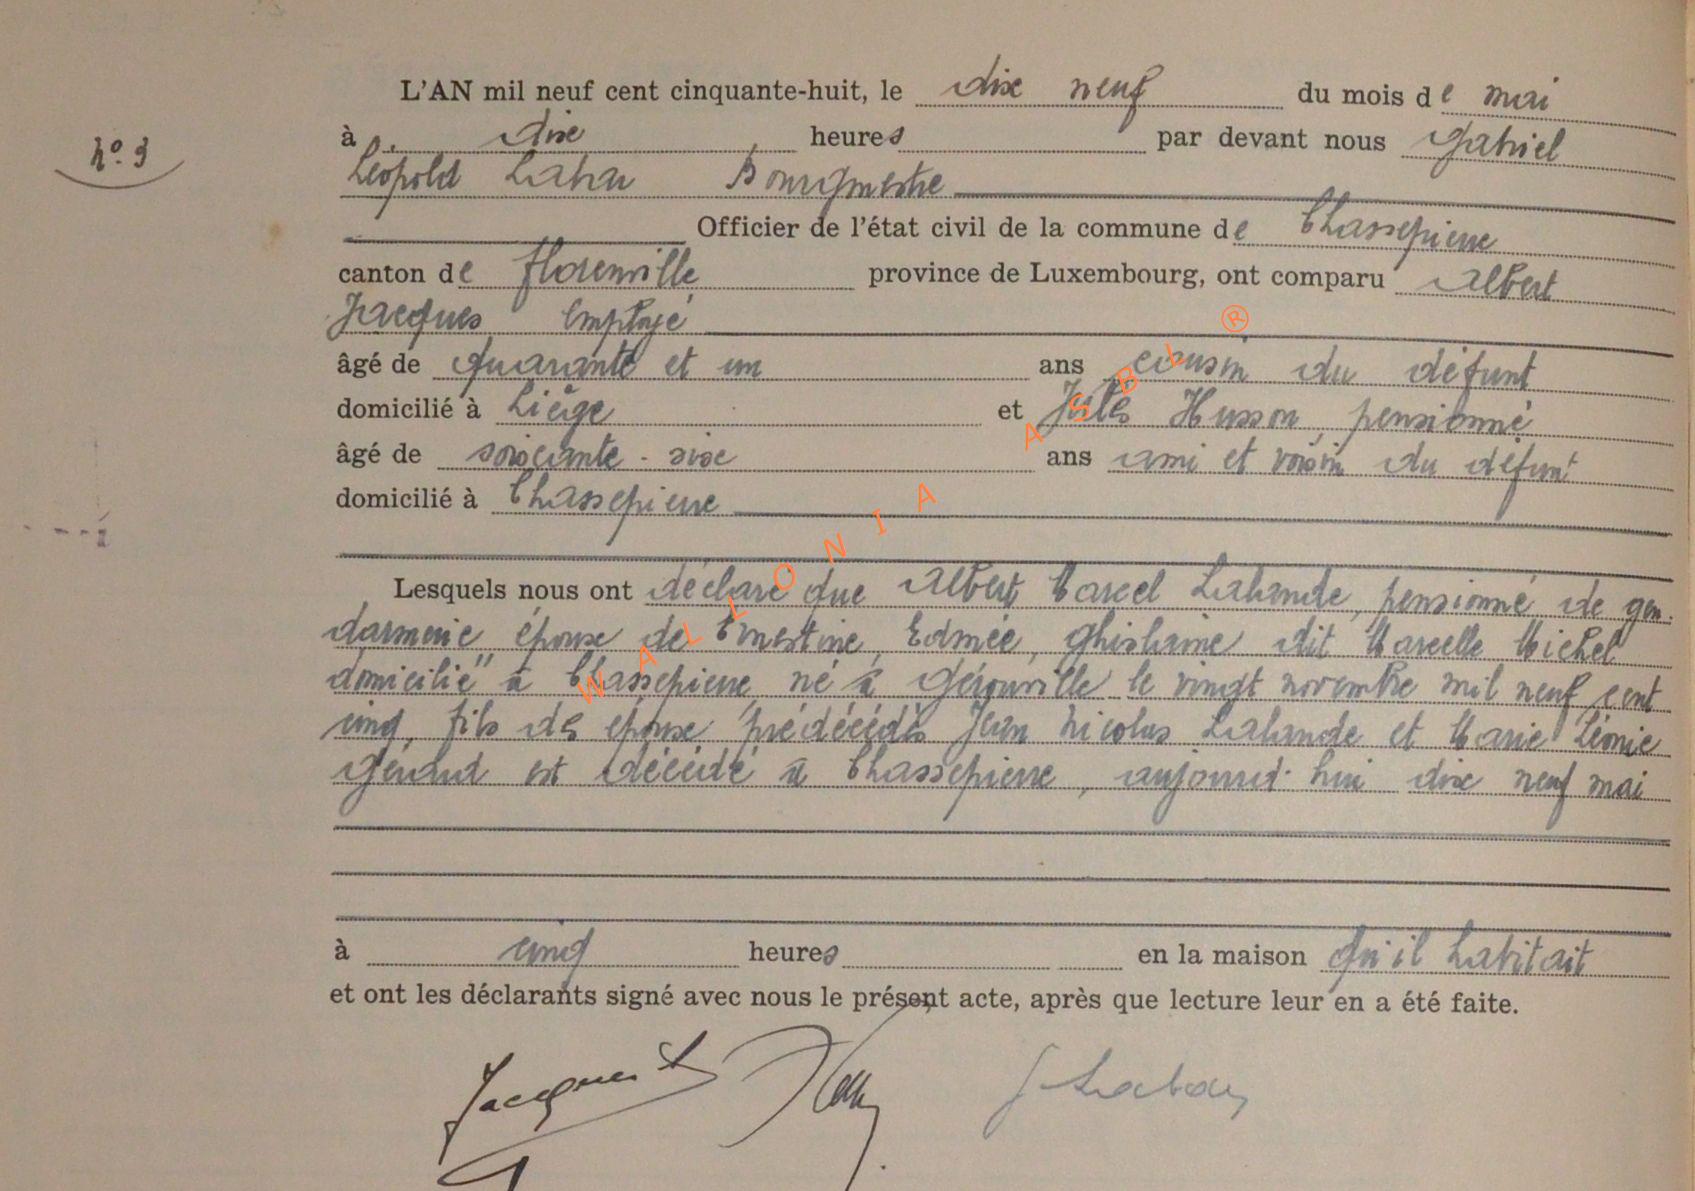 n° 3
L'AN mil neuf cent cinquante-huit, le dix neuf du mois de mai
à dix heures par devant nous Gabriel
Léopold Bourgmestre
Officier de l'état civil de la commune de Chassepierre
canton de Florenville province de Luxembourg, ont comparu Albert
Jacques Employé
âgé de quarante et un ans cousin du défunt
domicilié à Liège et Jules Husson, pensionné
âgé de soixante-six ans ami et voisin du défunt
domicilié à Chassepierre
Lesquels nous ont déclaré que Albert Marcel Lalande, pensionné de gen-
darmerie, époux de Ernestine, Edmée, Ghislaine dit Marcelle Michel
domicilié à Chassepierre, né à Gérouville le vingt novembre mil neuf cent
cinq, fils des époux prédécédés Jean Nicolas Lalande et Marie Léonie
Gérard est décédé à Chassepierre, aujourd'hui dix neuf mai
à cinq heures en la maison qu'il habitait
et ont les déclarants signé avec nous le présent acte, après que lecture leur en a été faite.
Jacques
WALLONIA ASBL ®